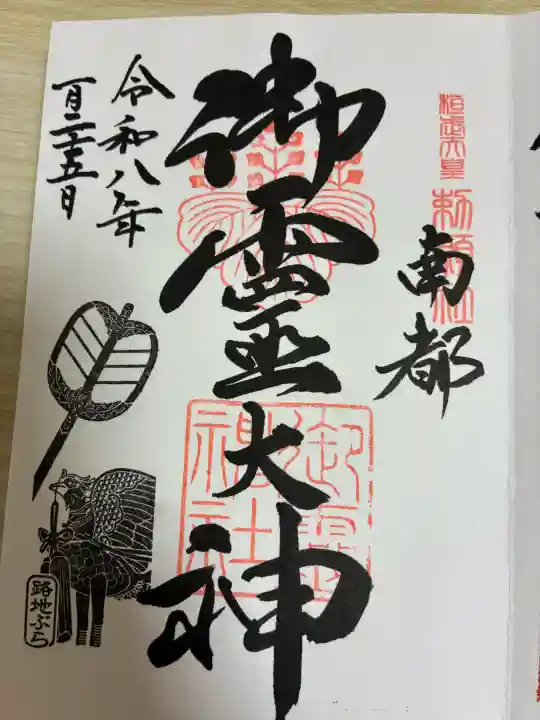 桓武天皇
勅願社
南都
御霊大神
御霊神社
令和八年
一月二十五日
路地ぶら